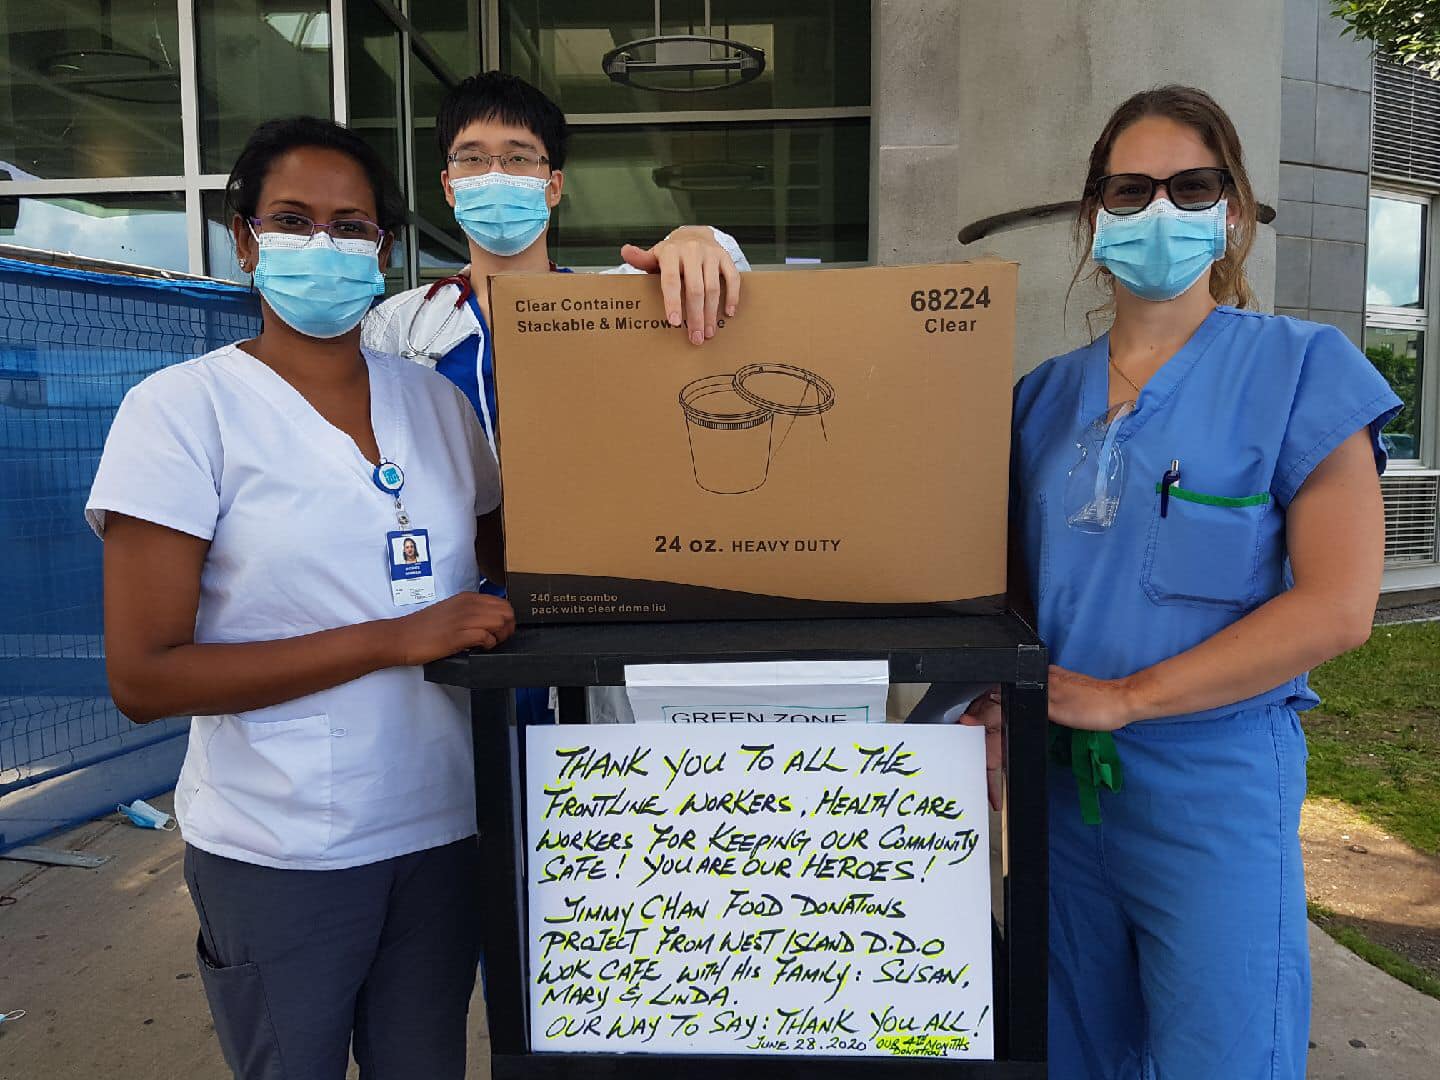 Clear Container
Stackable & Microw
68224
Clear
24 oz. HEAVY DUTY
240 sets combo
pack with clear dome lid
GREEN ZONE
THANK YOU TO ALL THE
FRONTLINE WORKERS, HEALTH CARE
WORKERS FOR KEEPING OUR COMMUNITY
SAFE! YOU ARE OUR HEROES!
JIMMY CHAN FOOD DONATIONS
PROJECT FROM WEST ISLAND D.D.O
WOK CAFE WITH HIS FAMILY: SUSAN,
MARY & LINDA.
OUR WAY TO SAY: THANK YOU ALL!
JUNE 28.2020 OUR 4TH MONTHS
DONATIONS